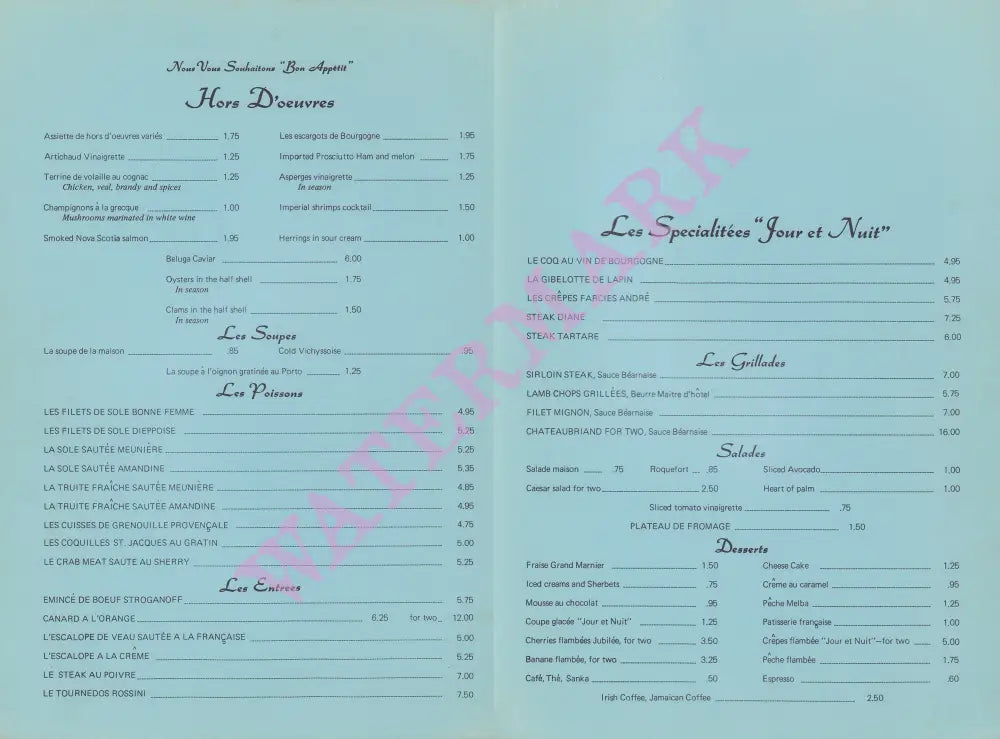 Nous Vous Souhaitons "Bon Appétit"
Hors D'oeuvres
Assiette de hors d'oeuvres variés 1.75
Les escargots de Bourgogne 1.95
Artichaud Vinaigrette 1.25
Imported Prosciutto Ham and melon 1.75
Terrine de volaille au cognac 1.25
Chicken, veal, brandy and spices
Asperges vinaigrette 1.25
In season
Champignons à la grecque 1.00
Mushrooms marinated in white wine
Imperial shrimps cocktail 1.50
Smoked Nova Scotia salmon 1.95
Herrings in sour cream 1.00
Beluga Caviar 6.00
Oysters in the half shell 1.75
In season
Clams in the half shell 1.50
In season
Les Soupes
La soupe de la maison .85
Cold Vichyssoise .95
La soupe à l'oignon gratinée au Porto 1.25
Les Poissons
LES FILETS DE SOLE BONNE FEMME 4.95
LES FILETS DE SOLE DIEPPOISE 5.25
LA SOLE SAUTÉE MEUNIÈRE 5.25
LA SOLE SAUTÉE AMANDINE 5.35
LA TRUITE FRAÎCHE SAUTÉE MEUNIÈRE 4.85
LA TRUITE FRAÎCHE SAUTÉE AMANDINE 4.95
LES CUISSES DE GRENOUILLE PROVENÇALE 4.75
LES COQUILLES ST. JACQUES AU GRATIN 5.00
LE CRAB MEAT SAUTE AU SHERRY 5.25
Les Entrees
EMINCÉ DE BOEUF STROGANOFF 5.75
CANARD A L'ORANGE 6.25 for two 12.00
L'ESCALOPE DE VEAU SAUTÉE A LA FRANÇAISE 5.00
L'ESCALOPE A LA CRÊME 5.25
LE STEAK AU POIVRE 7.00
LE TOURNEDOS ROSSINI 7.50
Les Specialitées "Jour et Nuit"
LE COQ AU VIN DE BOURGOGNE 4.95
LA GIBELOTTE DE LAPIN 4.95
LES CRÊPES FARCIES ANDRÉ 5.75
STEAK DIANE 7.25
STEAK TARTARE 6.00
Les Grillades
SIRLOIN STEAK, Sauce Béarnaise 7.00
LAMB CHOPS GRILLÉES, Beurre Maître d'hôtel 5.75
FILET MIGNON, Sauce Béarnaise 7.00
CHATEAUBRIAND FOR TWO, Sauce Béarnaise 16.00
Salades
Salade maison .75
Roquefort .85
Sliced Avocado 1.00
Caesar salad for two 2.50
Heart of palm 1.00
Sliced tomato vinaigrette .75
PLATEAU DE FROMAGE 1.50
Desserts
Fraise Grand Marnier 1.50
Cheese Cake 1.25
Iced creams and Sherbets .75
Crême au caramel .95
Mousse au chocolat .95
Pêche Melba 1.25
Coupe glacée "Jour et Nuit" 1.25
Patisserie française 1.00
Cherries flambées Jubilée, for two 3.50
Crêpes flambée "Jour et Nuit"—for two 5.00
Banane flambée, for two 3.25
Pêche flambée 1.75
Café, Thé, Sanka .50
Espresso .60
Irish Coffee, Jamaican Coffee 2.50
WATERMARK